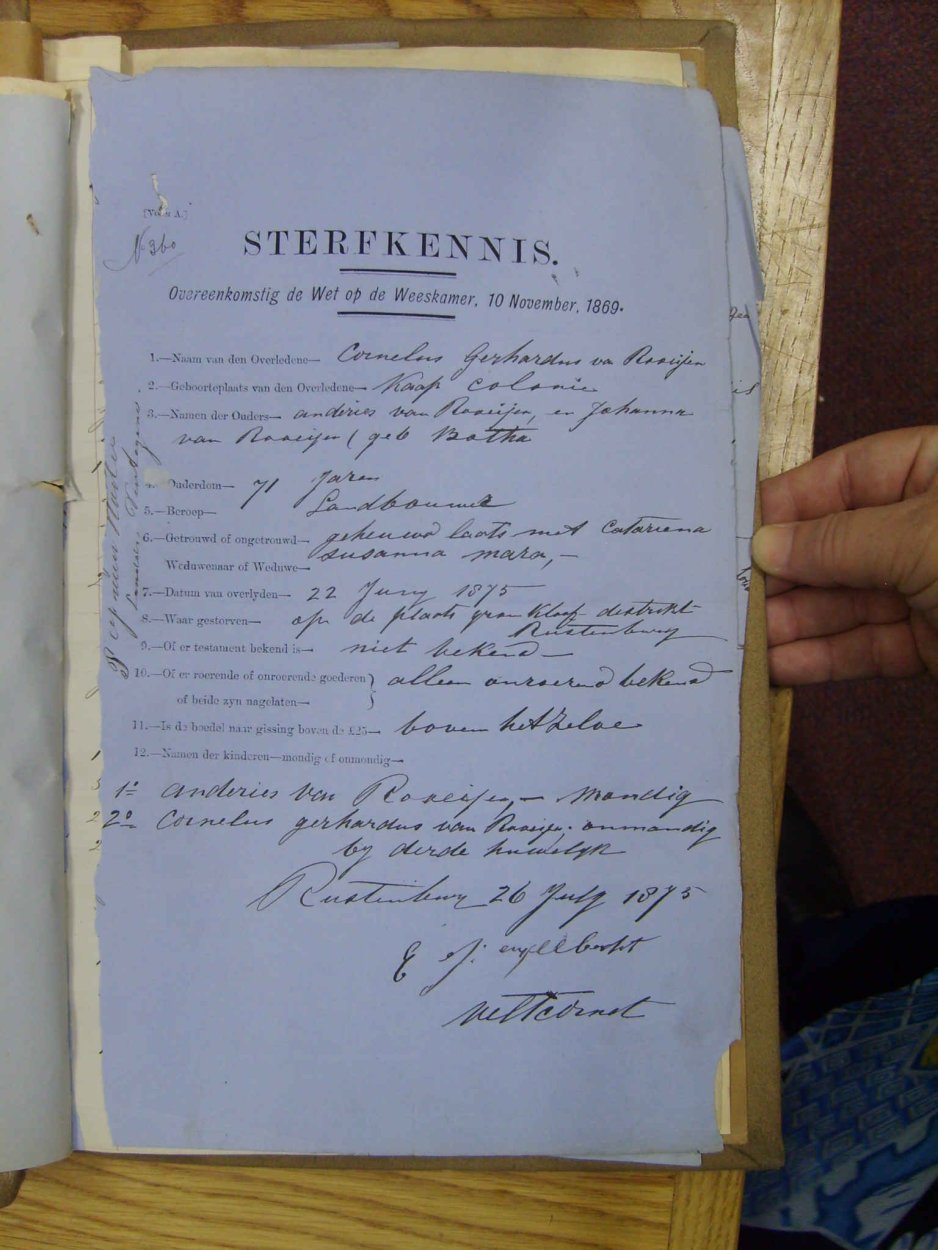 No 360
STERFKENNIS.
Overeenkomstig de Wet op de Weeskamer, 10 November, 1869.
1.—Naam van den Overledene— Cornelus Gerhardus van Rooeijen
2.—Geboorteplaats van den Overledene— Kaap Colonie
3.—Namen der Ouders— anderies van Rooeijen, en Johanna
van Rooeijen (geb Botha
4.—Ouderdom— 71 Jaren
5.—Beroep— Landbouwer
6.—Getrouwd of ongetrouwd— geheuwd laats met Catariena
Weduwenaar of Weduwe— susanna mara,—
7.—Datum van overlyden— 22 Juny 1875
8.—Waar gestorven— op de plaats kloof destrikt
Rustenburg
9.—Of er testament bekend is— niet bekend—
10.—Of er roerende of onroerende goederen} alleen onroerend bekend
of beide zyn nagelaten—
11.—Is de boedel naar gissing boven de £25— boven hetzelve
12.—Namen der kinderen—mondig of onmondig—
1o anderies van Rooeijen,— mondig
2o Cornelus gerhardus van Rooeijen, onmondig
by derde huwelyk
Rustenburg 26 July 1875
veltcornet